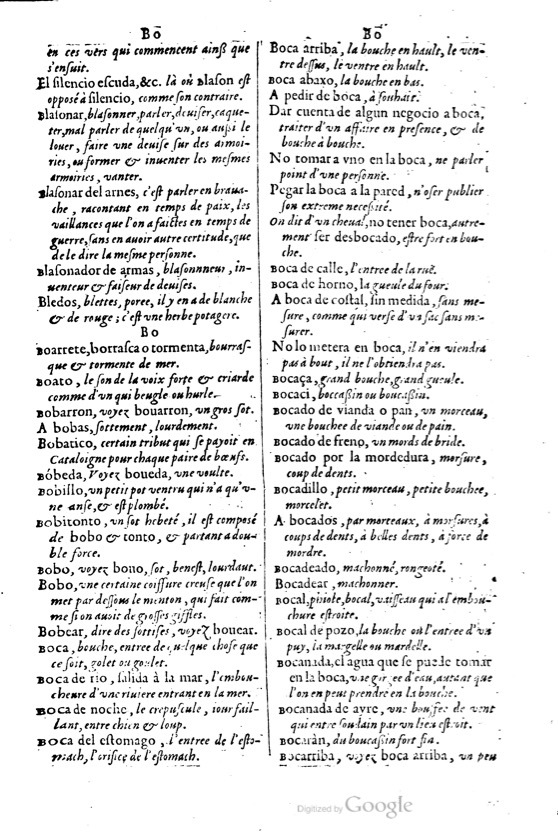 Bo
en ces vers qui commencent ainſi que
s'enſuit.
El silencio escuda, &c. là où Blaſon eſt
oppoſé à ſilencio, comme ſon contraire.
Blaſonar, blaſonner, parler, deuiſer, caque-
ter, mal parler de quelqu'vn, ou auſſi le
louer, faire vne deuiſe ſur des aimoi-
ries, ou former & inuenter les meſmes
armoiries, vanter.
Blaſonar del arnes, c'eſt parler en braua-
che, racontant en temps de paix, les
vaillances que l'on a faictes en temps de
guerre, ſans en auoir autre certitude, que
de le dire la meſme perſonne.
Blaſonador de armas, blaſonnneur, in-
uenteur & faiſeur de deuiſes.
Bledos, blettes, poree, il y en a de blanche
& de rouge; c'eſt vne herbe potagere.
Bo
Boarrete, borraſca o tormenta, bourraſ-
que & tormente de mer.
Boato, le ſon de la voix forte & criarde
comme d'vn qui beugle ou hurle.
Bobarron, voyez bouarron, vn gros ſot.
A bobas, ſottement, lourdement.
Bobatico, certain tribut qui ſe payoit en
Cataloigne pour chaque paire de bœufs.
Bóbeda, Voyez boueda, vne voulte.
Bobillo, vn petit pot ventru qui n'a qu'v-
ne anſe, & eſt plombé.
Bobitonto, vn ſot hebeté, il eſt compoſé
de bobo & tonto, & partant a dou-
ble force.
Bobo, voyez bouo, ſot, beneſt, lourdaut.
Bobo, vne certaine coiffure creuſe que l'on
met par deſſous le menton, qui fait com-
me ſi on auoit de groſſes giffles.
Bobear, dire des ſottiſes, voyez bouear.
Boca, bouche, entree de quelque choſe que
ce ſoit, golet ou goulet.
Boca de rio, ſalida à la mar, l'embou-
cheure d'vne riuiere entrant en la mer.
Boca de noche, le crepuſcule, iour fail-
lant, entre chien & loup.
Boca del eſtomago, l'entree de l'eſto-
mach, l'orifice de l'eſtomach.
Bo
Boca arriba, la bouche en hault, le ven-
tre deſſus, le ventre en hault.
Boca abaxo, la bouche en bas.
A pedir de boca, à ſouhait.
Dar cuenta de algun negocio a boca,
traiter d'vn affaire en preſence, & de
bouche à bouche.
No tomar a vno en la boca, ne parler
point d'vne perſonne.
Pegar la boca a la pared, n'oſer publier
ſon extreme neceſſité.
On dit d'vn cheual, no tener boca, autre-
ment ſer desbocado, eſtre fort en bou-
che.
Boca de calle, l'entree de la ruë.
Boca de horno, la gueule du four.
A boca de coſtal, ſin medida, ſans me-
ſure, comme qui verſe d'vn ſac ſans me-
ſurer.
No lo metera en boca, il n'en viendra
pas à bout, il ne l'obtiendra pas.
Bocaça, grand bouche, grand gueule.
Bocaci, boccaſſin ou boucaſſin.
Bocado de vianda o pan, vn morceau,
vne bouchee de viande ou de pain.
Bocado de freno, vn mords de bride.
Bocado por la mordedura, morſure,
coup de dents.
Bocadillo, petit morceau, petite bouchee,
morcelet.
A bocados, par morteaux, à morſures, à
coups de dents, à belles dents, à force de
mordre.
Bocadeado, machonné, rongeoté.
Bocadear, machonner.
Bocal, phiole, bocal, vaiſſeau qui a l'embou-
chure eſtroite.
Bocal de pozo, la bouche ou l'entree d'vn
puy, la margelle ou mardelle.
Bocanada, el agua que ſe puede tomar
en la boca, vne gorgee d'eau, autant que
l'on en peut prendre en la bouche.
Bocanada de ayre, vne bouffee de vent
qui entre ſoudain par vn lieu eſtroit.
Bocaràn, du boucaſſin fort fin.
Bocarriba, voyez boca arriba, vn peu
Digitized by Google